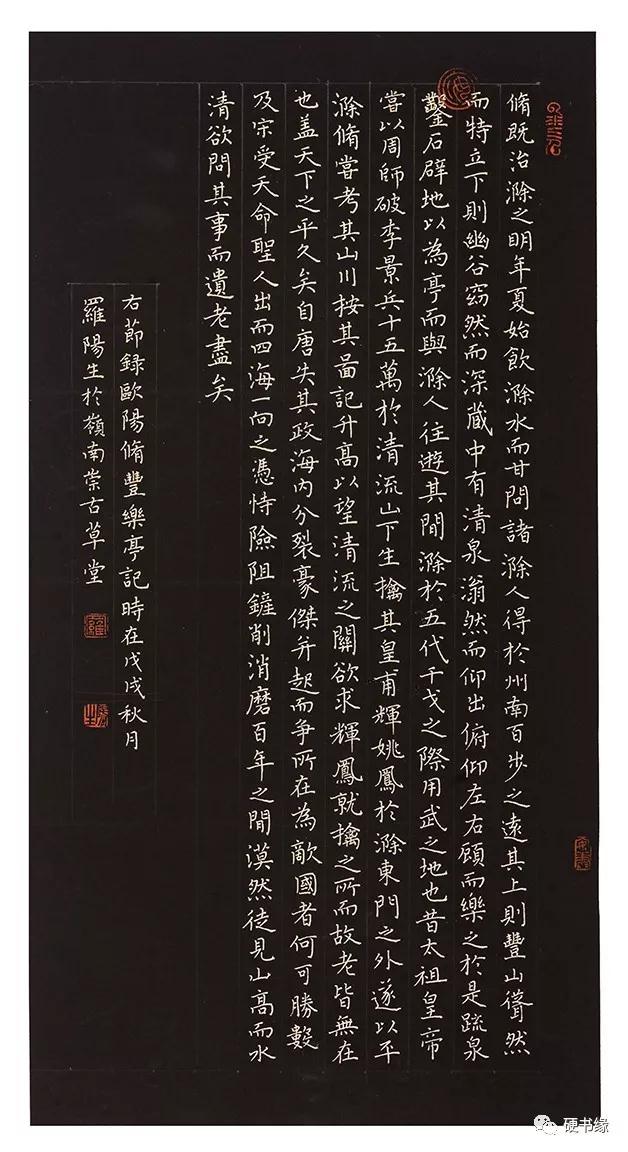 脩既治滁之明年夏始飲滁水而甘問諸滁人得於州南百步之遠其上則豐山聳然
而特立下則幽谷窈然而深藏中有清泉滃然而仰出俯仰左右顧而樂之於是疏泉
鑿石辟地以為亭而與滁人往遊其間滁於五代干戈之際用武之地也昔太祖皇帝
嘗以周師破李景兵十五萬於清流山下生擒其皇甫輝姚鳳於滁東門之外遂以平
滁脩嘗考其山川按其啚記升高以望清流之關欲求輝鳳就擒之所而故老皆無在
也盖天下之平久矣自唐失其政海內分裂豪傑并起而爭所在為敵國者何可勝數
及宋受天命聖人出而四海一向之憑恃險阻鏟削消磨百年之間漠然徒見山高而水
清欲問其事而遺老盡矣
右節録歐陽脩豐樂亭記時在戊戌秋月
羅陽生於嶺南崇古草堂
硬书缘